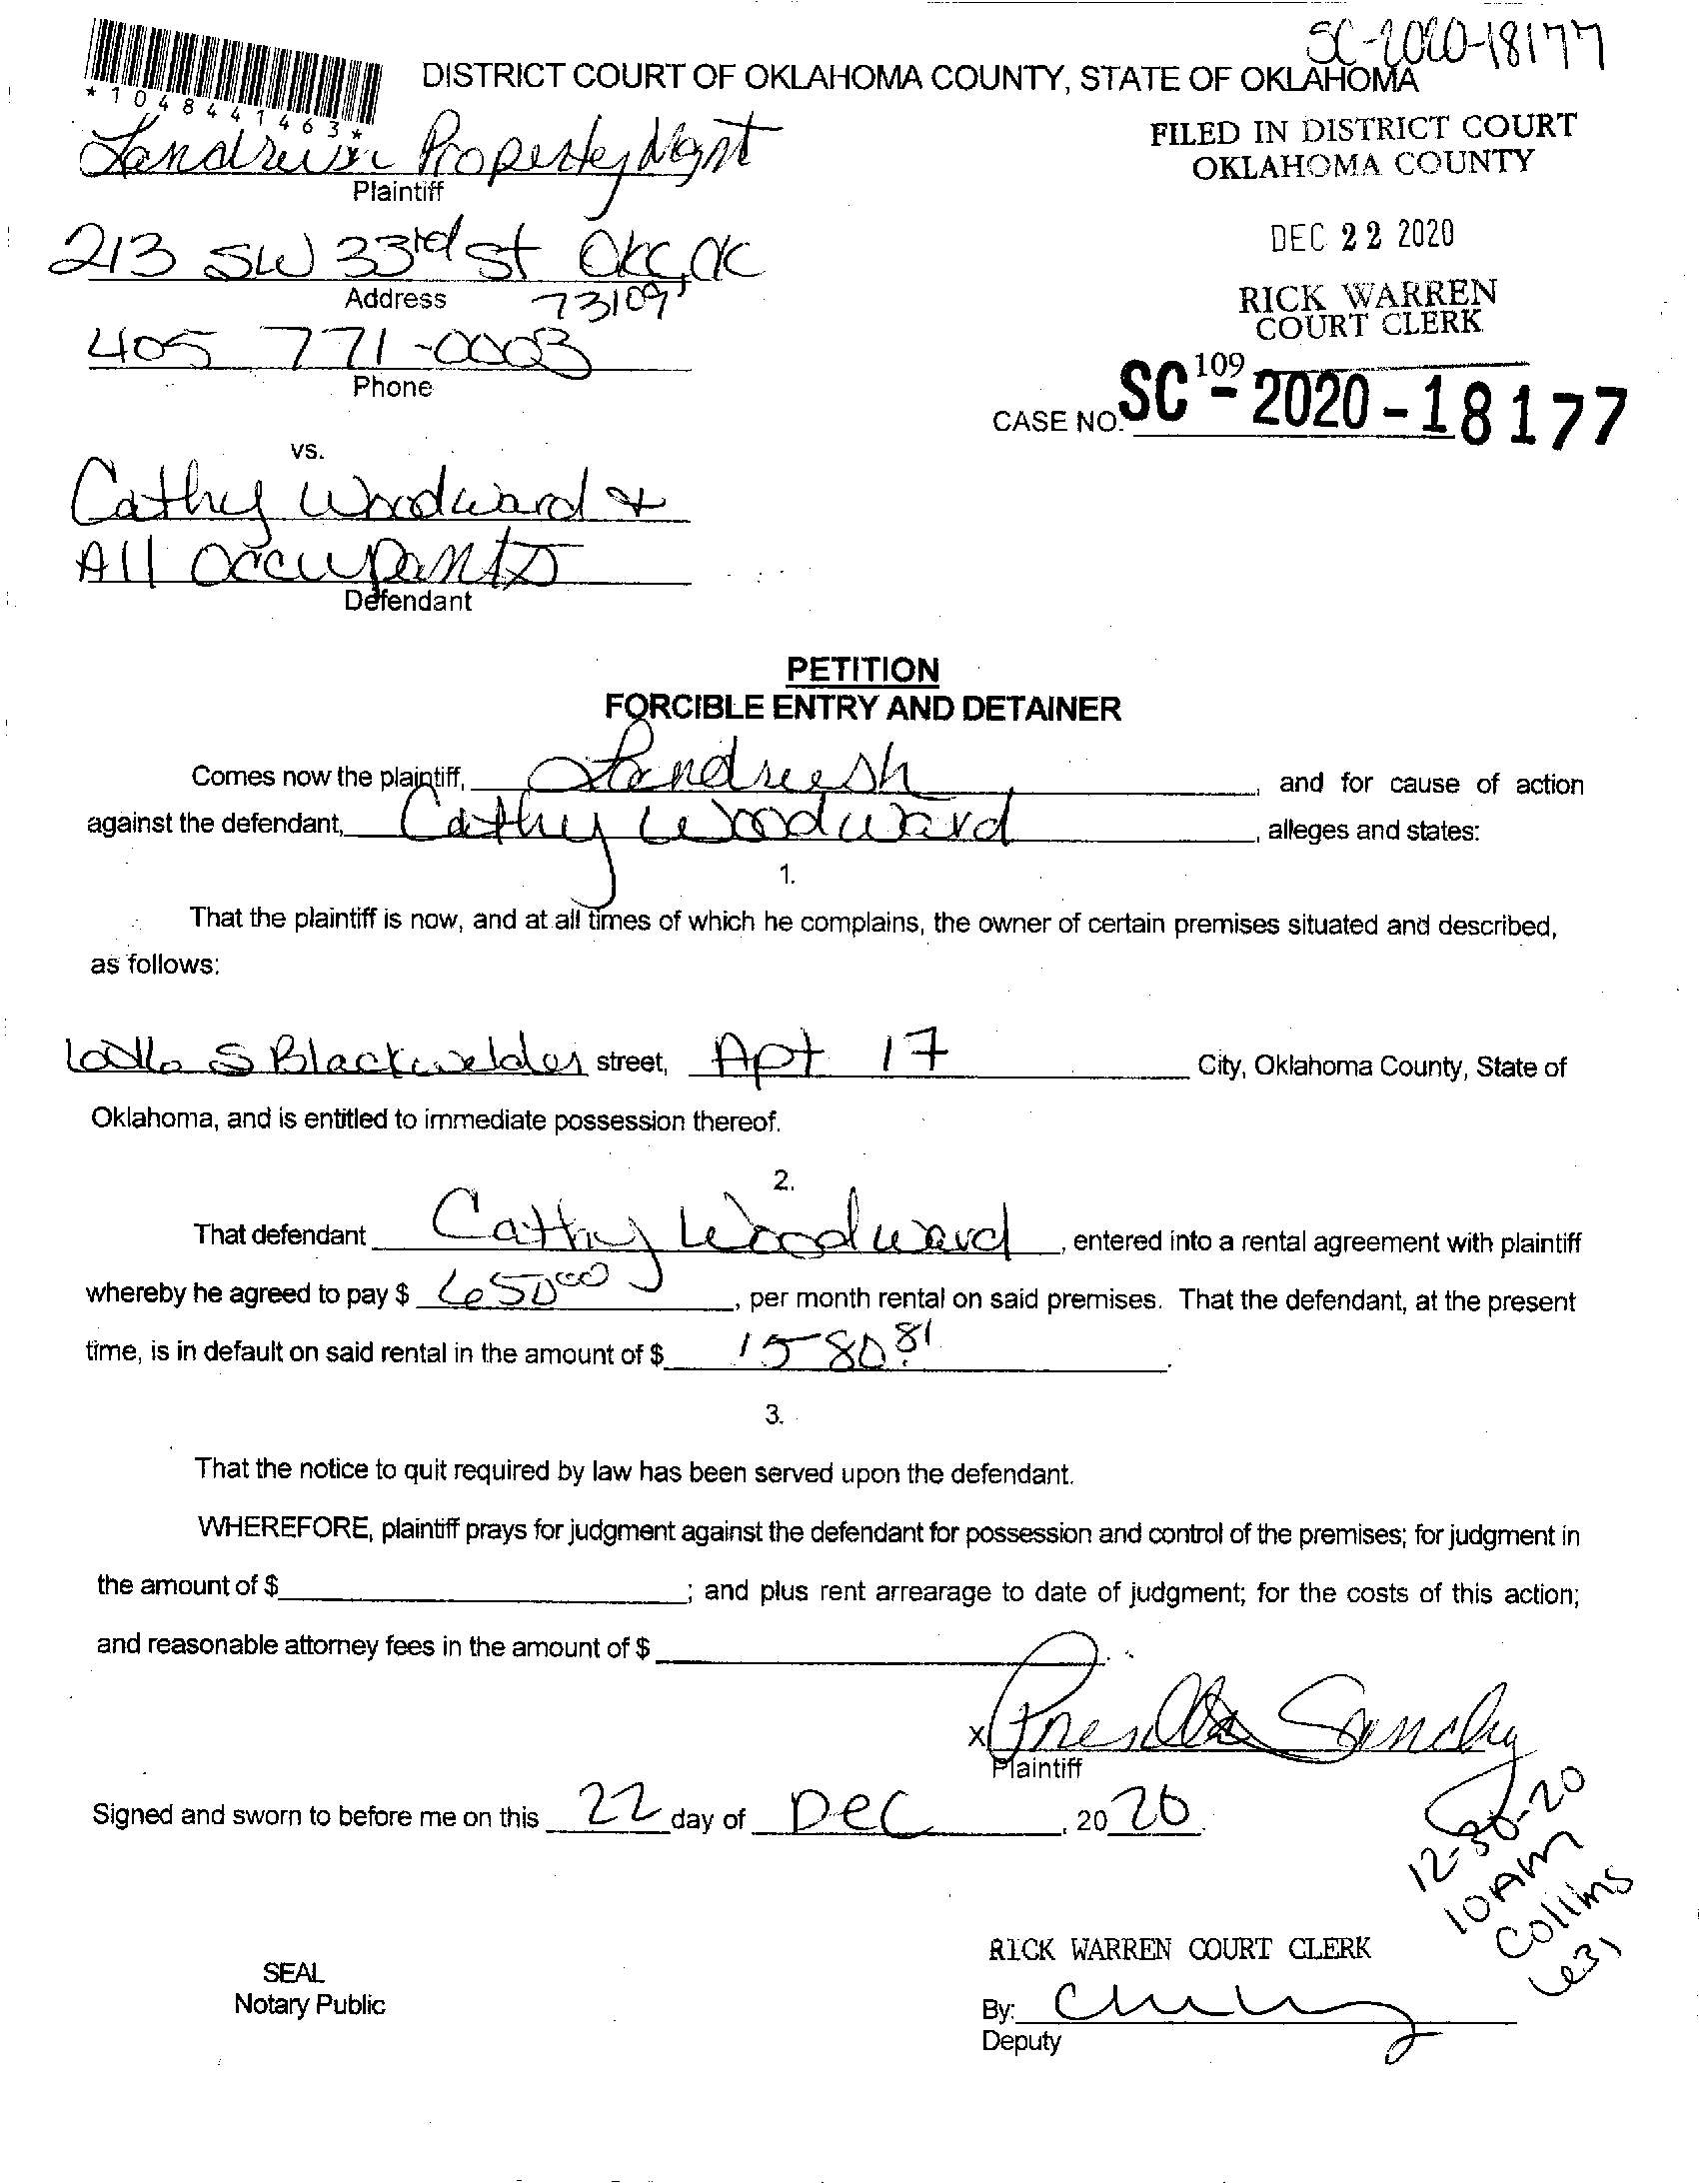 SC-2020-18177
DISTRICT COURT OF OKLAHOMA COUNTY, STATE OF OKLAHOMA
*1048441463*
FILED IN DISTRICT COURT
OKLAHOMA COUNTY
Property Mgnt
Plaintiff
DEC 22 2020
213 SW 33rd St OKC, OK
Address 73109
RICK WARREN
COURT CLERK
405 771-0003
Phone
109
CASE NO. SC-2020-18177
vs.
Cathy Woodward &
All Occupants
Defendant
PETITION
FORCIBLE ENTRY AND DETAINER
Comes now the plaintiff, , and for cause of action
against the defendant, Cathy Woodward, alleges and states:
1.
That the plaintiff is now, and at all times of which he complains, the owner of certain premises situated and described,
as follows:
S Blackwelder street, Apt 17 City, Oklahoma County, State of
Oklahoma, and is entitled to immediate possession thereof.
2.
That defendant Cathy Woodward, entered into a rental agreement with plaintiff
whereby he agreed to pay $ 650.00, per month rental on said premises. That the defendant, at the present
time, is in default on said rental in the amount of $ 1580.81.
3.
That the notice to quit required by law has been served upon the defendant.
WHEREFORE, plaintiff prays for judgment against the defendant for possession and control of the premises; for judgment in
the amount of $ ; and plus rent arrearage to date of judgment; for the costs of this action;
and reasonable attorney fees in the amount of $ .
X
Plaintiff
Signed and sworn to before me on this 22 day of Dec, 2020.
12-30-20
10AM
Collins
RICK WARREN COURT CLERK
SEAL
Notary Public
By:
Deputy